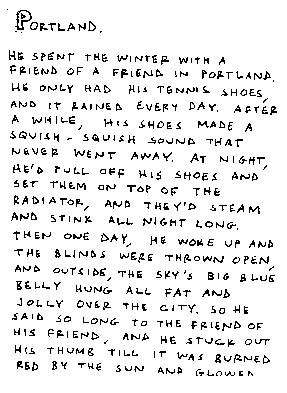 PORTLAND.
HE SPENT THE WINTER WITH A
FRIEND OF A FRIEND IN PORTLAND.
HE ONLY HAD HIS TENNIS SHOES,
AND IT RAINED EVERY DAY. AFTER
A WHILE, HIS SHOES MADE A
SQUISH-SQUISH SOUND THAT
NEVER WENT AWAY. AT NIGHT,
HE'D PULL OFF HIS SHOES AND
SET THEM ON TOP OF THE
RADIATOR, AND THEY'D STEAM
AND STINK ALL NIGHT LONG.
THEN ONE DAY, HE WOKE UP AND
THE BLINDS WERE THROWN OPEN,
AND OUTSIDE, THE SKY'S BIG BLUE
BELLY HUNG ALL FAT AND
JOLLY OVER THE CITY. SO HE
SAID SO LONG TO THE FRIEND OF
HIS FRIEND, AND HE STUCK OUT
HIS THUMB TILL IT WAS BURNED
RED BY THE SUN AND GLOWED